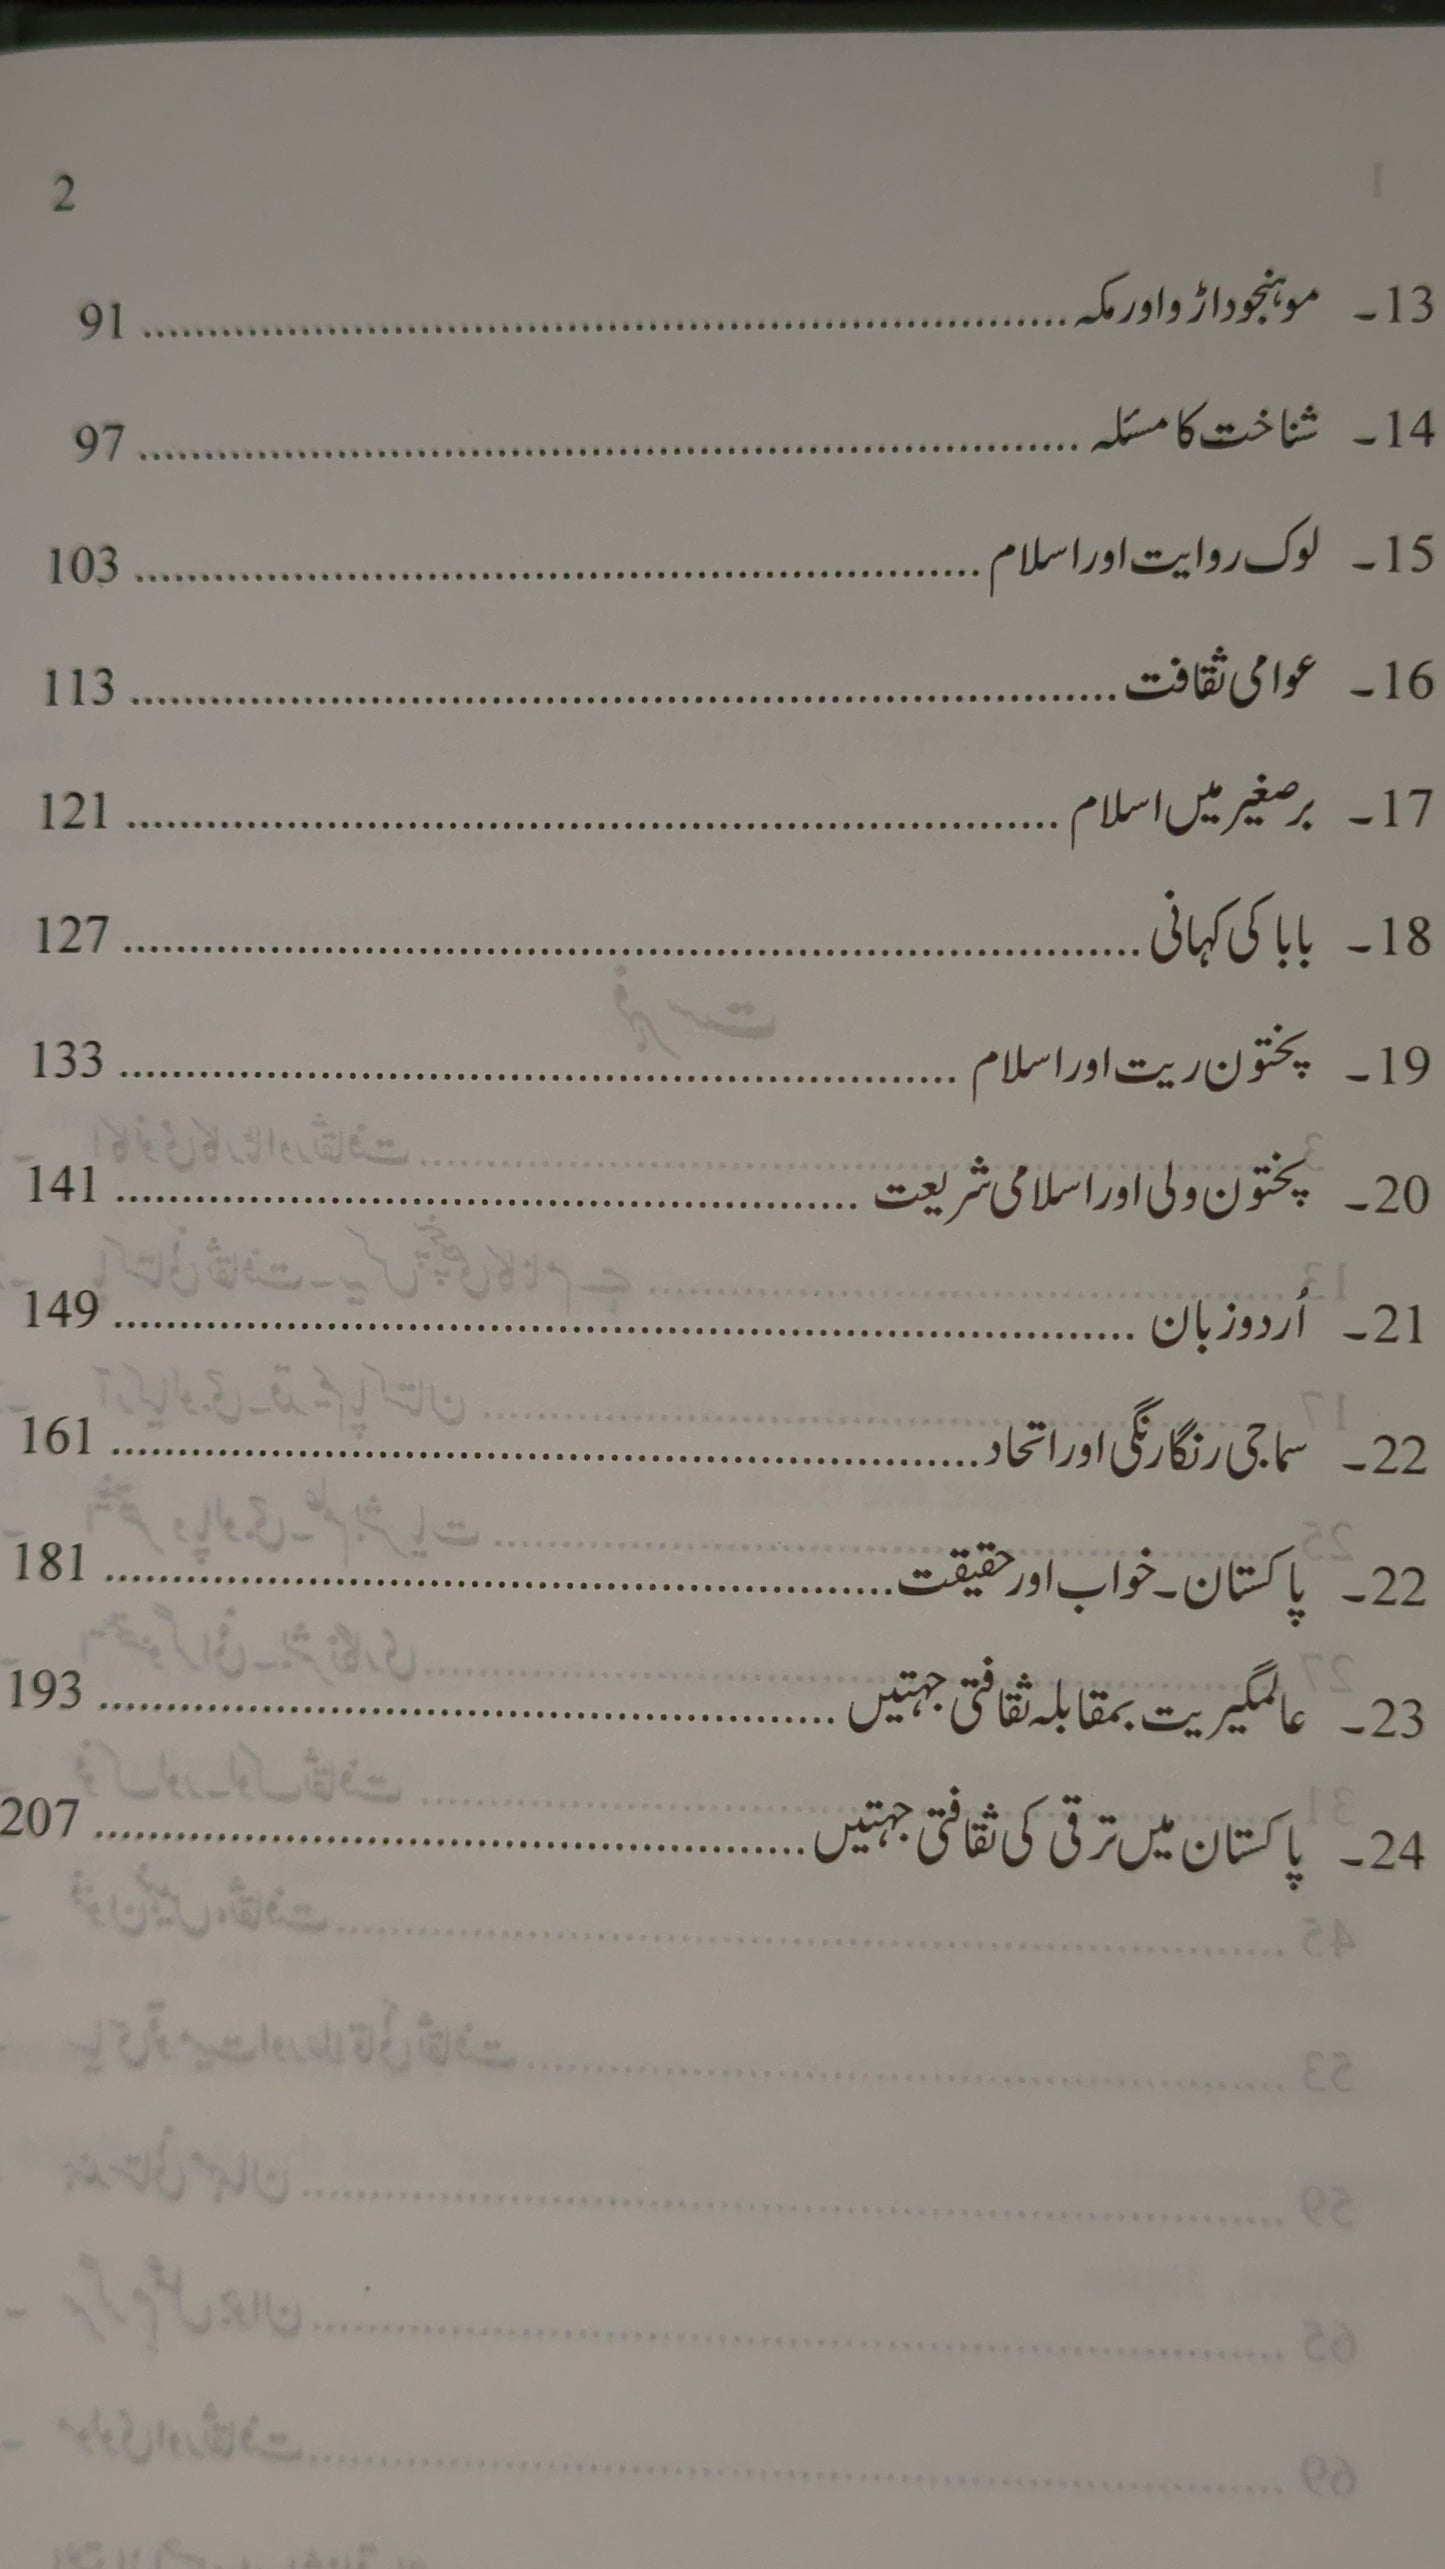 2
13۔ موہنجوداڑو اور مکہ ........ 91
14۔ شناخت کا مسئلہ ........ 97
15۔ لوک روایت اور اسلام ........ 103
16۔ عوامی ثقافت ........ 113
17۔ برصغیر میں اسلام ........ 121
18۔ بابا کی کہانی ........ 127
19۔ پختون ریت اور اسلام ........ 133
20۔ پختون ولی اور اسلامی شریعت ........ 141
21۔ اُردو زبان ........ 149
22۔ سماجی رنگارنگی اور اتحاد ........ 161
22۔ پاکستان۔ خواب اور حقیقت ........ 181
23۔ عالمگیریت بمقابلہ ثقافتی جہتیں ........ 193
24۔ پاکستان میں ترقی کی ثقافتی جہتیں ........ 207